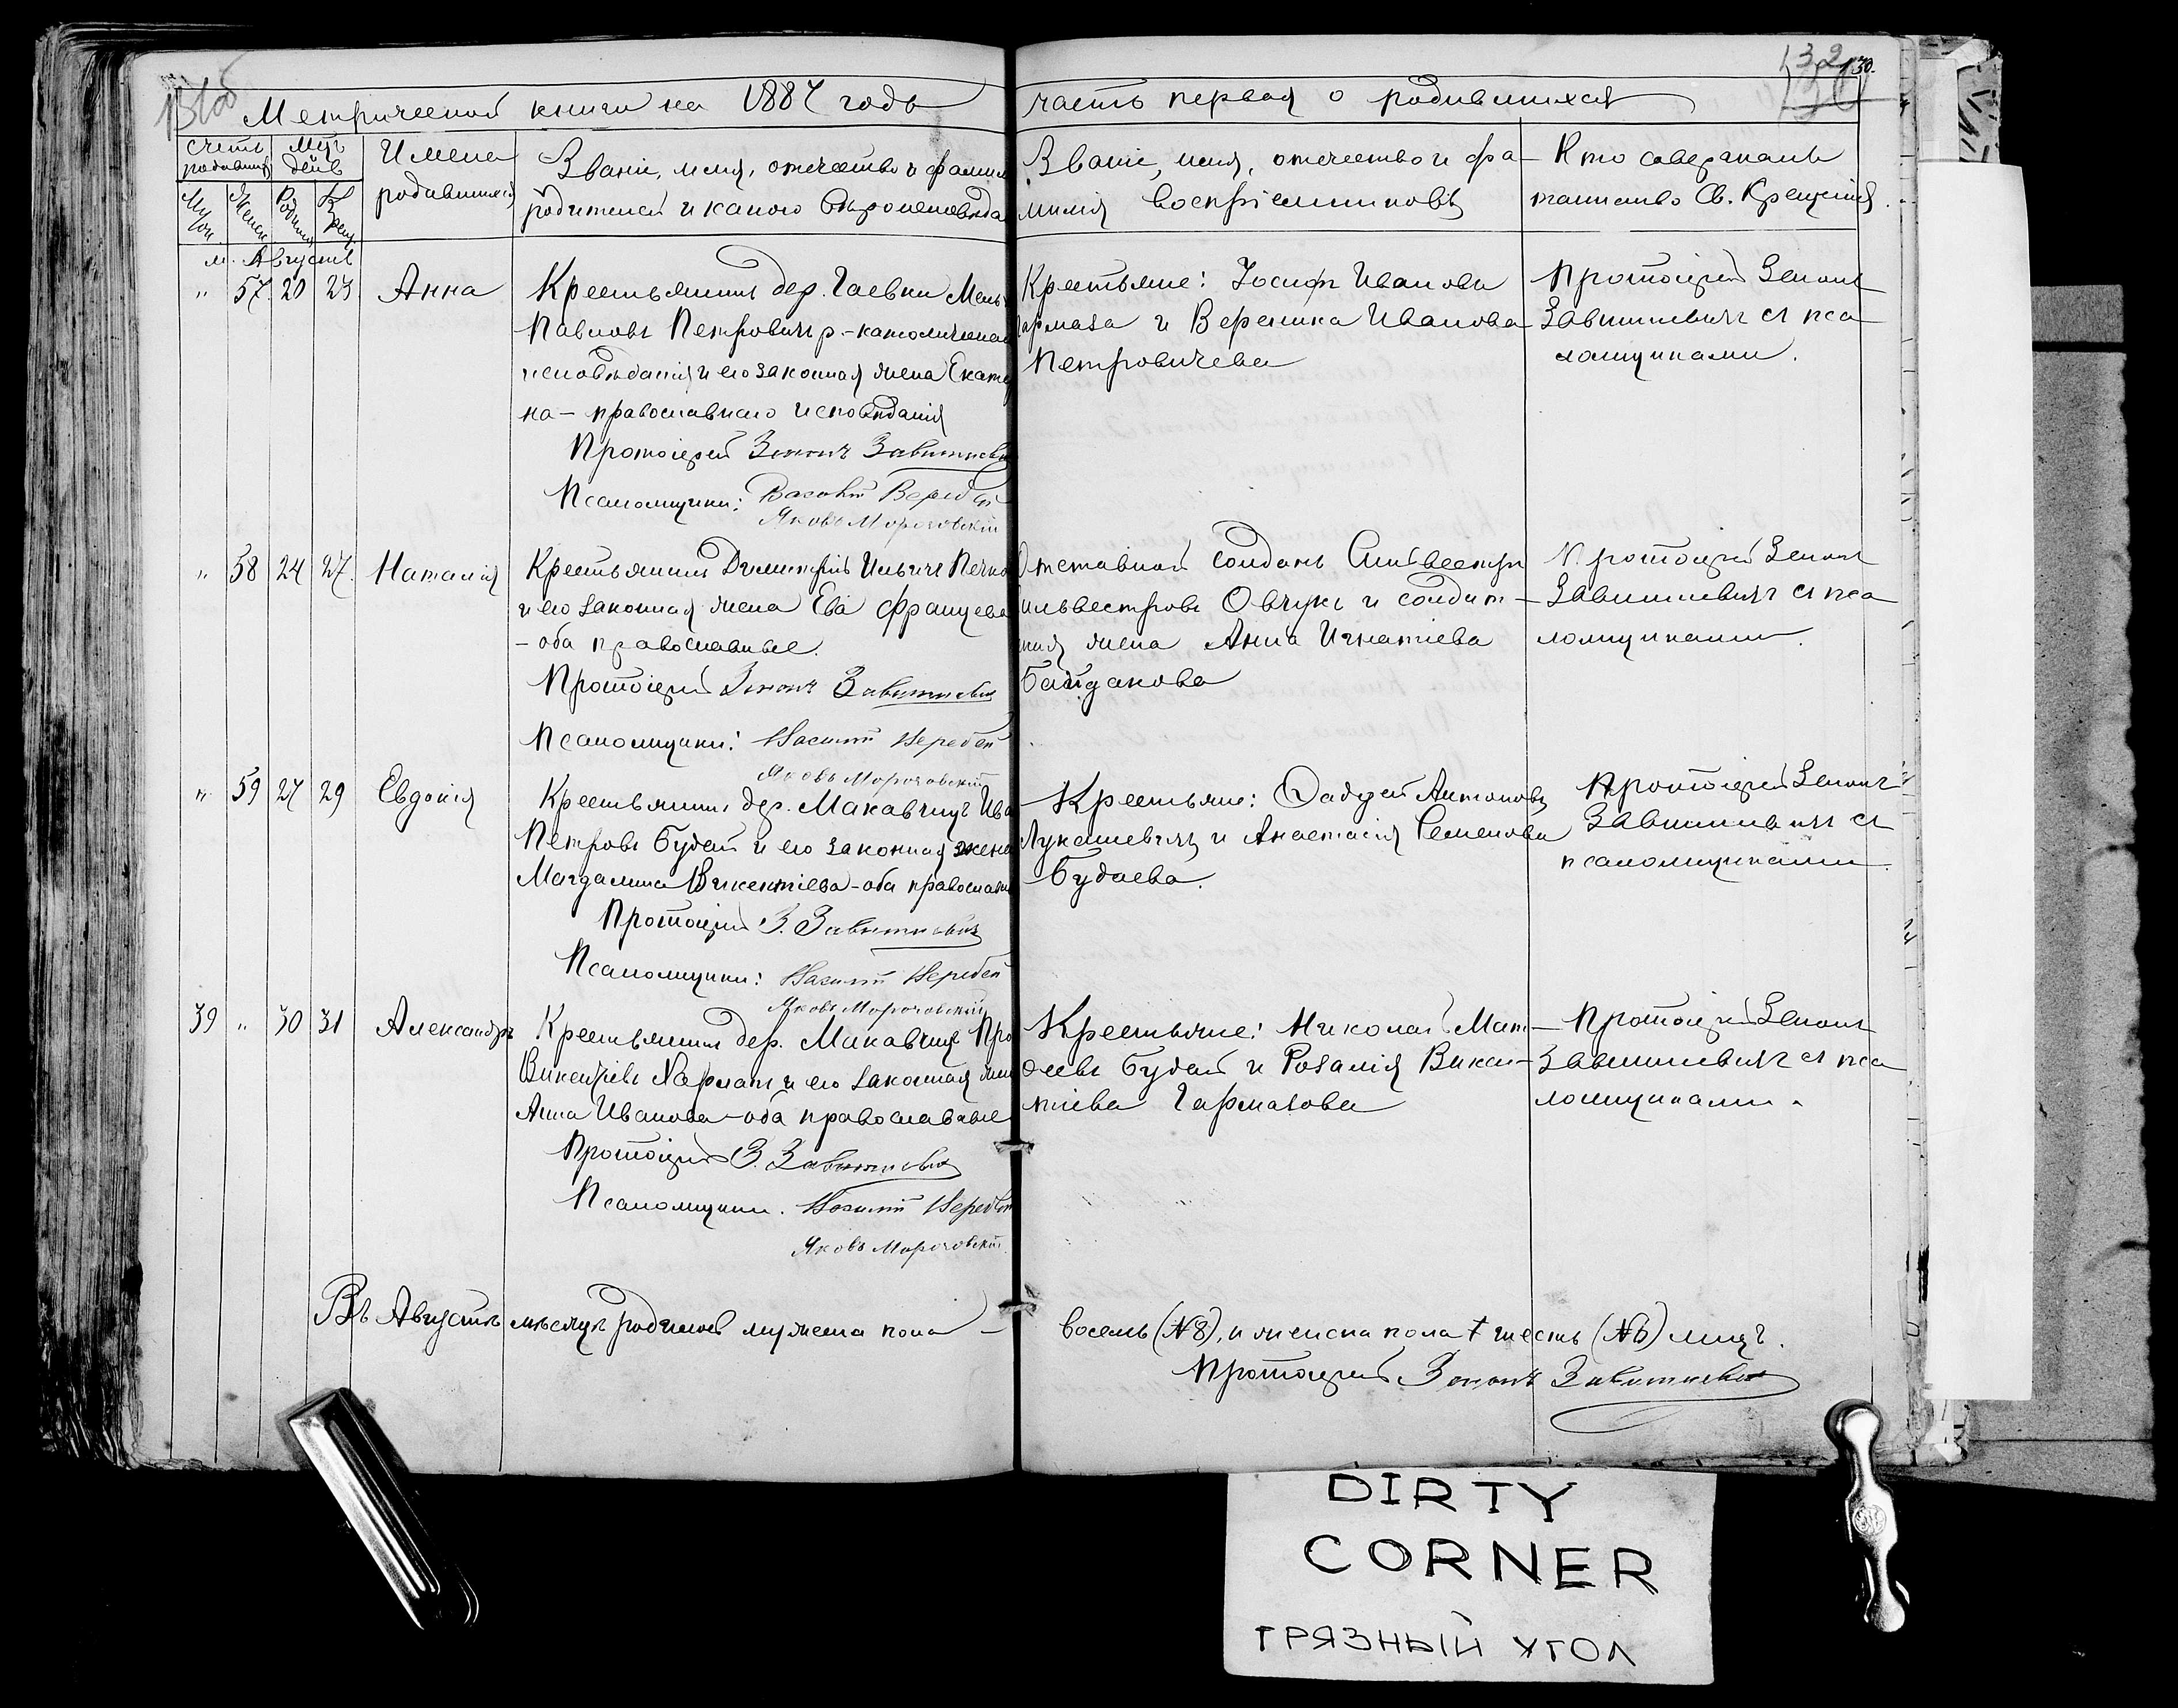 132
130.
Метрической книги на 1887 годъ часть первая о родившихся
Счетъ родившихся
Мѣс. день
Имена родившихся
Званіе, имя, отчество и фамил
родителей и какого вѣроисповѣда
Званіе, имя, отчество и фа-
милія воспріемниковъ
Кто совершалъ
таинство Св. Крещенія.
м. Августъ
" 57 20 23 Анна
Крестьянинъ дер. Гаевки
Павловъ Петровичъ р.-католическаго
исповѣданія и его законная жена Екате
на - православнаго исповѣданія
Протоіерей Зенонъ Завитневичъ
Псаломщики: Василій Веребей
Яковъ Морозовскій
Крестьяне: Іосифъ Ивановъ
Гармаза и Вероника Иванова
Петровичева
Протоіерей Зенонъ
Завитневичъ съ пса
ломщиками.
" 58 24 27. Наталія
Крестьянинъ Димитрій Ильичъ
и его законная жена Ева Францева
- оба православные.
Протоіерей Зенонъ Завитневичъ
Псаломщики: Василій Веребей
Яковъ Морозовскій
Отставной солдатъ Сильвестръ
ильвестровъ Овчукъ и солдат-
ская жена Анна Игнатіева
Байдакова
Протоіерей Зенонъ
Завитневичъ съ пса
ломщиками.
" 59 27 29 Евдокія
Крестьянинъ дер. Макавчицъ Ива
Петровъ Будай и его законная жена
Магдалина Викентіева - оба православн
Протоіерей З. Завитневичъ
Псаломщики: Василій Веребей
Яковъ Морозовскій
Крестьяне: Фадей Антоновъ
Лукашевичъ и Анастасія Семенова
Будаева.
Протоіерей Зенонъ
Завитневичъ съ
псаломщиками.
39 " 30 31 Александръ
Крестьянинъ дер. Макавчицъ Про
Викентіевъ и его законная жен
Анна Иванова - оба православные
Протоіерей З. Завитневичъ
Псаломщики. Василій Веребей
Яковъ Морозовскій
Крестьяне: Николай Мат-
феевъ Будай и Розалія Викен-
тіева Гармазова
Протоіерей Зенонъ
Завитневичъ съ пса
ломщиками.
Въ Августѣ мѣсяцѣ родилось мужеска пола - восемь (№8), и женска пола шесть (№6) лицъ.
Протоіерей Зенонъ Завитневичъ
DIRTY
CORNER
ГРЯЗНЫЙ УГОЛ